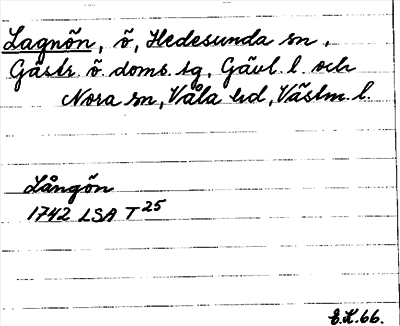 Lagnön, ö, Hedesunda sn,
Gästr. ö. doms. tg, Gävl. l. och
Nora sn, Våla hd, Västm. l.
Långön
1742 LSA T 25
E.H.66.